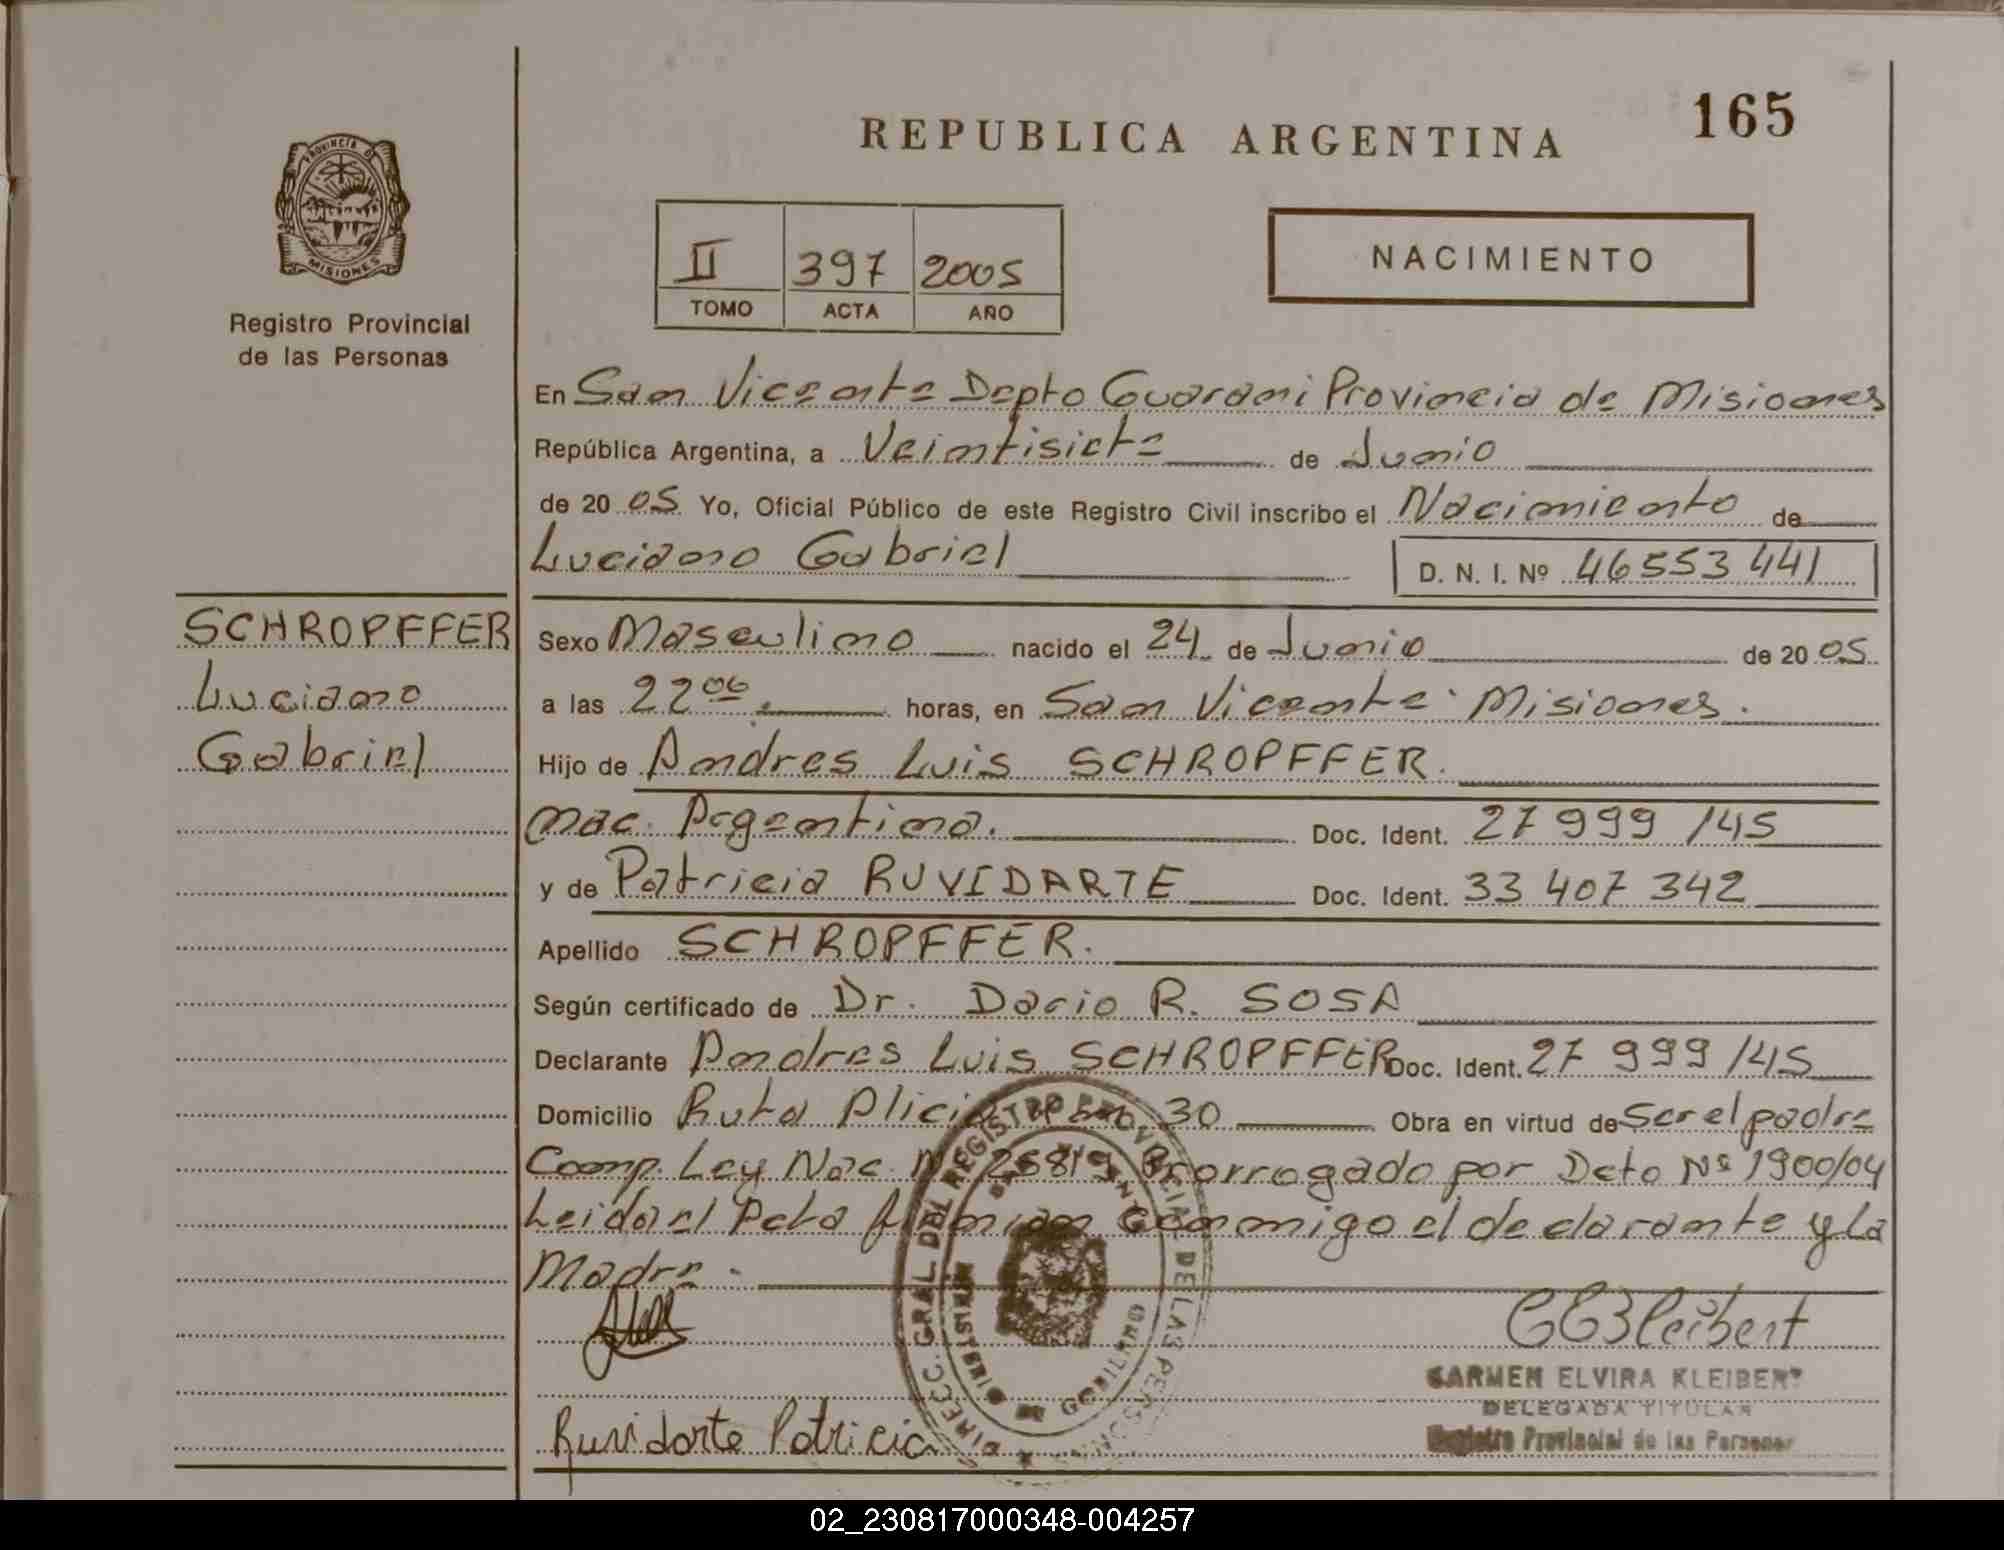 165
REPUBLICA ARGENTINA
PROVINCIA DE
MISIONES
Registro Provincial
de las Personas
II 397 2005
TOMO ACTA AÑO
NACIMIENTO
En San Vicente Depto Guarani Provincia de Misiones
República Argentina, a Veintisiete de Junio
de 2005 Yo, Oficial Público de este Registro Civil inscribo el Nacimiento de
Luciano Gabriel D. N. I. Nº 46553441
SCHROPFFER
Luciano
Gabriel
Sexo Masculino nacido el 24 de Junio de 2005
a las 22 06 horas, en San Vicente - Misiones.
Hijo de Andres Luis SCHROPFFER.
nac. Argentina. Doc. Ident. 27 999 145
y de Patricia RUVIDARTE Doc. Ident. 33 407 342
Apellido SCHROPFFER.
Según certificado de Dr. Dario R. SOSA
Declarante Andres Luis SCHROPFFER Doc. Ident. 27 999 145
Domicilio Ruta 30 Obra en virtud de Ser el padre
Comp. Ley Nac. Nº 25819 Prorrogado por Dcto Nº 1900/04
Leida el Acta firman conmigo el declarante y La
Madre -
DIRECC. GRAL. DEL REGISTRO PROVINCIAL DE LAS PERSONAS
MINISTERIO DE GOBIERNO
Ruvidarte Patricia
CEKleibert
CARMEN ELVIRA KLEIBERT
DELEGADA TITULAR
Registro Provincial de las Personas
02_230817000348-004257